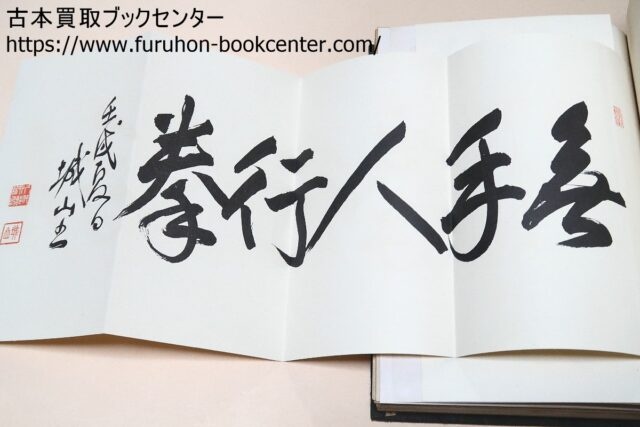 古本買取ブックセンター
https://www.furuhon-bookcenter.com/
無手人行拳
壬戌夏日
城山